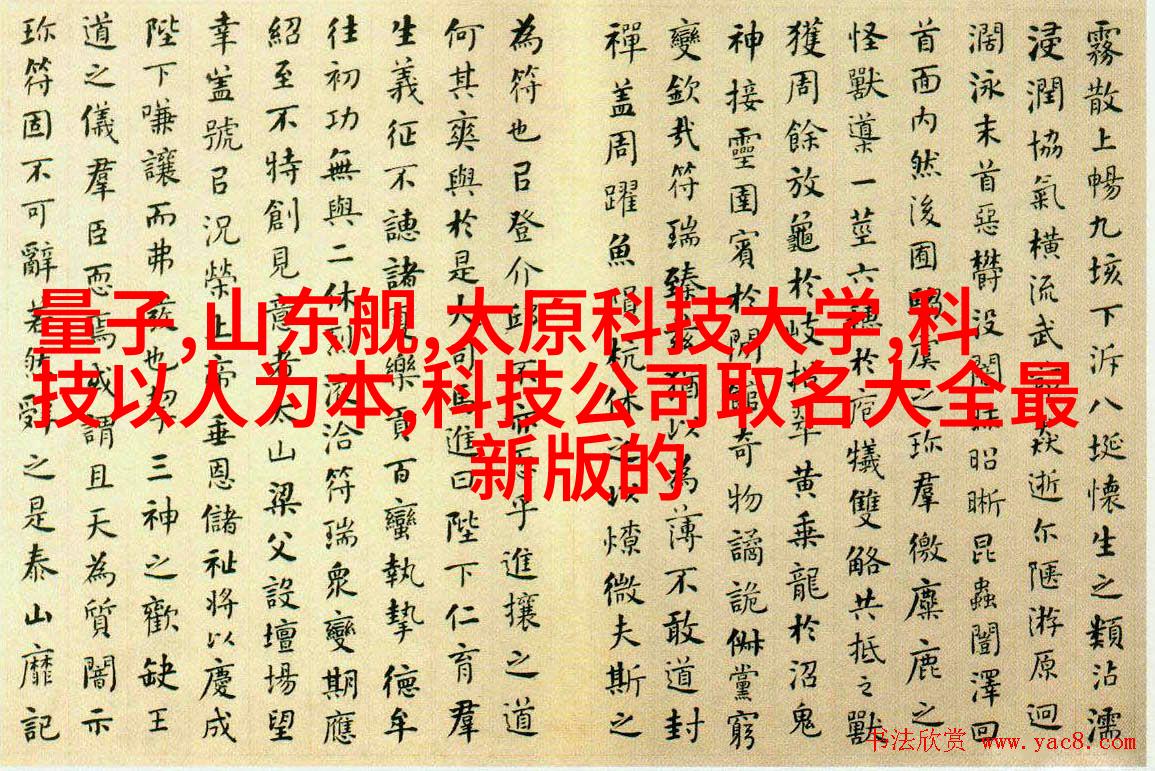 量子,山东舰,太原科技大学,科
技以人为本,科技公司取名大全最
新版的
霧散上暢九垓下泝八埏懷生之類沾濡
浸潤協氣橫流武猋逝尔陿游原迥
濶泳末首惡欝沒闇昭晰昆蟲闓澤回
首面内然後囿虞之珍羣徼麋鹿之
怪獸導一莖六穗於庖犧雙觡共抵之獸
獲周餘放龜於岐翠黄乗龍於沼鬼
神接靈圉賓於閒館奇物譎詭俶黨窮
變欽哉符瑞臻兹猶以為薄不敢道封
禪盖周躍魚隕杭休之以燎微夫斯之
為符也㠯登介丘不乎進攘之道
何其爽與於是大司馬進曰陛下仁育羣
生義征不譓諸夏樂貢百蠻執摯德牟
往初功無與二休烈浹洽符瑞衆變期應
紹至不特創見意者太山梁父設壇場望
幸盖號㠯况榮上帝垂恩儲祉將以慶成
陛下嗛讓而弗也三神之歡缺王
道之儀羣臣恧焉或謂且天為質闇示
珍符固不可辭若然之是泰山靡記
书法欣赏 www.yac8.com